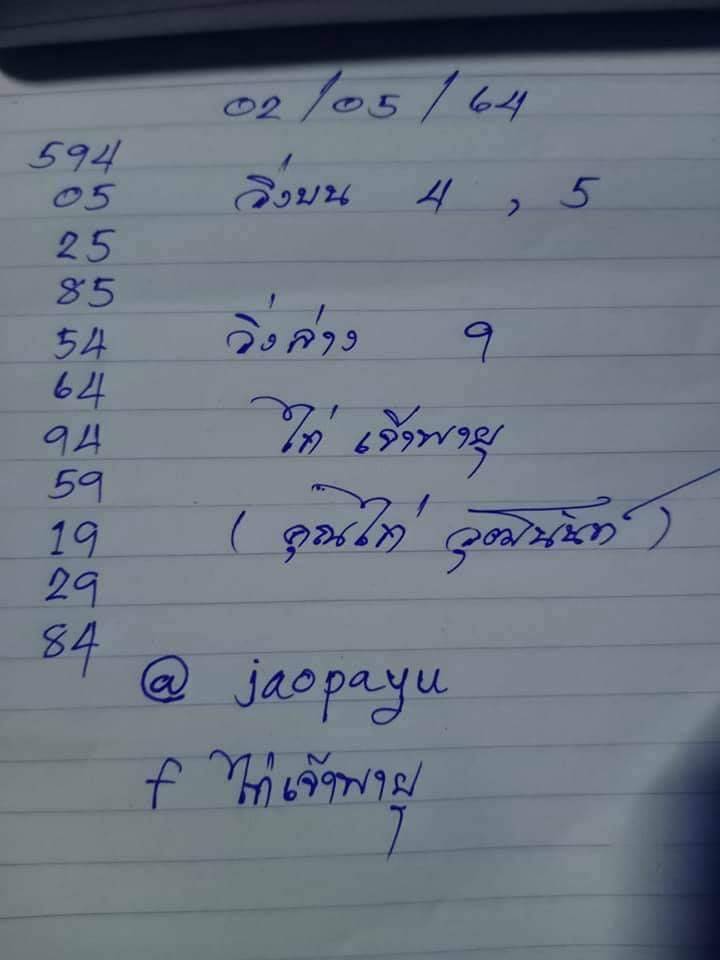 02/05/64
594
05 วิ่งบน 4 , 5
25
85
54 วิ่งล่าง 9
64
94 ไก่ เจ้าพายุ
59
19 ( คุณไก่ วุฒินันท์ )
29
84
@ jaopayu
f ไก่เจ้าพายุ